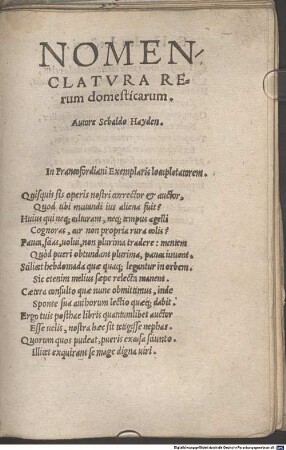 NOMEN-
CLATVRA RE-
rum domesticarum.
Autore Sebaldo Hayden.
In Francofordiani Exemplaris
Quisquis sis operis nostri corrector & auctor,
Quod tibi mutandi ius aliena fuit?
Huius qui neq; culturam, neq; tempus agelli
Cognoras, cur non propria rura colis?
Pauca, scias, uolui, non plurima tradere: mentem
Quòd pueri obtundant plurima, pauca iuuent.
Scilicet hebdomada quæ quaq; legantur in orbem.
Sic etenim melius sæpe relecta manent.
Cætera consulto quæ nunc obmittimus, inde
Sponte sua authorum lectio quæq; dabit.
Ergo tuis posthac libris quantumlibet auctor
Esse uelis, nostra hæc sit tetigisse nephas.
Quorum quos pudeat, pueris excusa sinunto.
Illi exquirant se mage digna uiri.